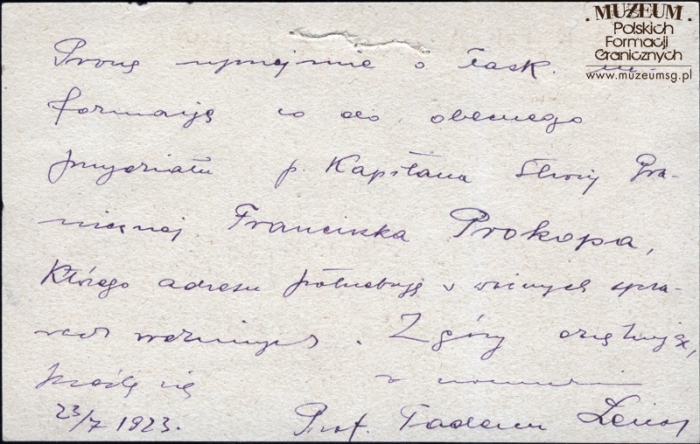 MUZEUM
Polskich
Formacji
Granicznych
www.muzeumsg.pl
Proszę uprzejmie o łask. in-
formację co do obecnego
przydziału p. Kapitana Straży Gra-
nicznej Franciszka Prokopa,
którego adresu potrzebuję w różnych spra-
wach ważnych. Z góry dziękując,
kreślę się z
23/7 1923. Prof. Tadeusz